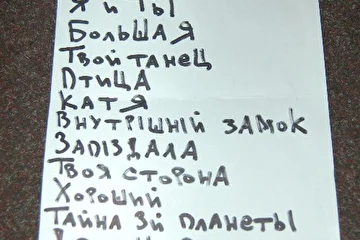 Я И ТЫ
БОЛЬШАЯ
ТВОЙ ТАНЕЦ
ПТИЦА
КАТЯ
ВНУТРІШНІЙ ЗАМОК
ЗАПІЗДАЛА
ТВОЯ СТОРОНА
ХОРОШИЙ
ТАЙНА 3Й ПЛАНЕТЫ